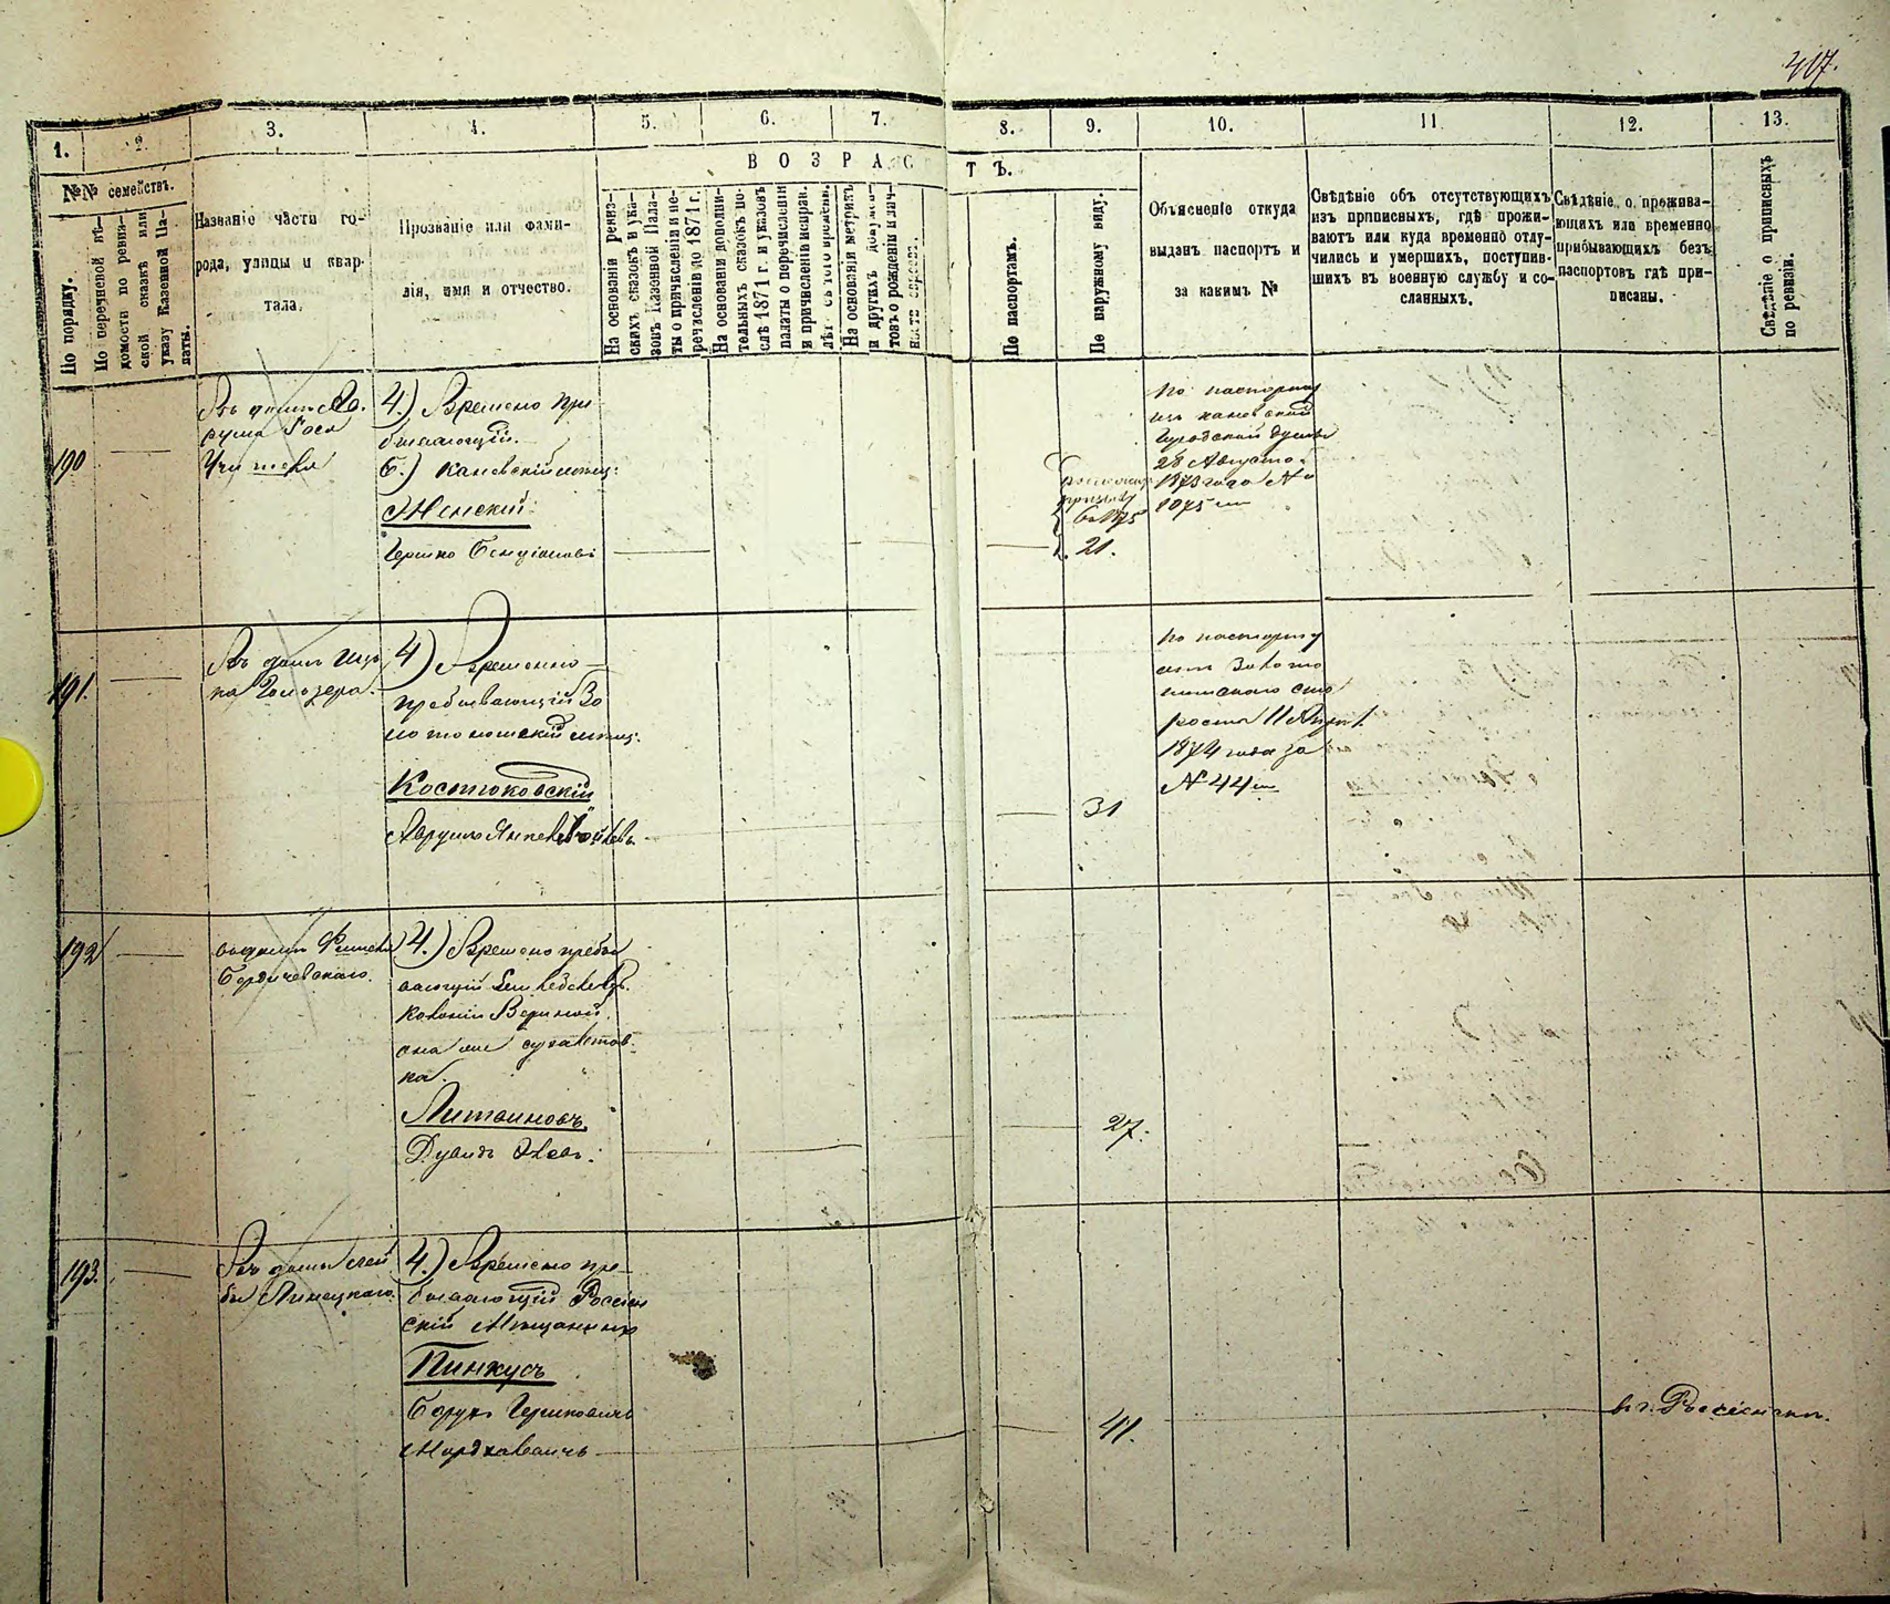 417.
1.
2.
3.
4.
5.
6.
7.
8.
9.
10.
11
12.
13.
№№ семействъ.
По порядку.
По перечневой вѣ-
домости по ревиз-
ской сказкѣ или
указу Казенной Па-
латы.
Названіе части го-
рода, улицы и квар-
тала.
Прозваніе или фами-
лія, имя и отчество.
ВОЗРАСТЪ.
На основаніи ревиз-
скихъ сказокъ и ука-
зовъ Казенной Пала-
ты о причисленіи и пе-
речисленіи до 1871 г.
На основаніи дополни-
тельныхъ сказокъ по-
слѣ 1871 г. и указовъ
палаты о перечисленіи
и причисленіи исправ.
лѣт съ того времени.
На основаніи метрикъ
и другихъ докумен-
товъ о рожденіи и лич-
По паспортамъ.
По наружному виду.
Объясненіе откуда
выданъ паспортъ и
за какимъ №
Свѣдѣніе объ отсутствующихъ
изъ приписныхъ, гдѣ прожи-
ваютъ или куда временно отлу-
чились и умершихъ, поступив-
шихъ въ военную службу и со-
сланныхъ.
Свѣдѣніе о прожива-
ющихъ или временно
прибывающихъ безъ
паспортовъ гдѣ при-
писаны.
Свѣдѣніе о приписныхъ
по ревизіи.
190
Въ домѣ
4.) Времено пре
бывающій.
Б.) Каневскій мѣщ:
Женскій
Гершко Бенціоновъ
6 1875
21.
По паспорту
изъ каневской
Городской думы
28 Августа
1873 года №
1075
191.
Въ домѣ Иц
ка
4) Временно
пребывающій Зо
лотоношскій мѣщ:
Костюковскій
31
По паспорту
отъ Золото
ношского ста
росты 11
1874 года за
№ 44
192
въ домѣ
Бердичевскаго.
4.) Времено пребы
вающій Земледелецъ
Колоніи
ка.
Литвиновъ
Дувидъ
27.
193.
Въ домѣ Лей
бы Линецкаго.
4.) Времено пре
бывающій Россіен
скій Мѣщанинъ
Пинкусъ
Борухъ Гершковичъ
Мордхавичъ
41.
в г. Россіенахъ.